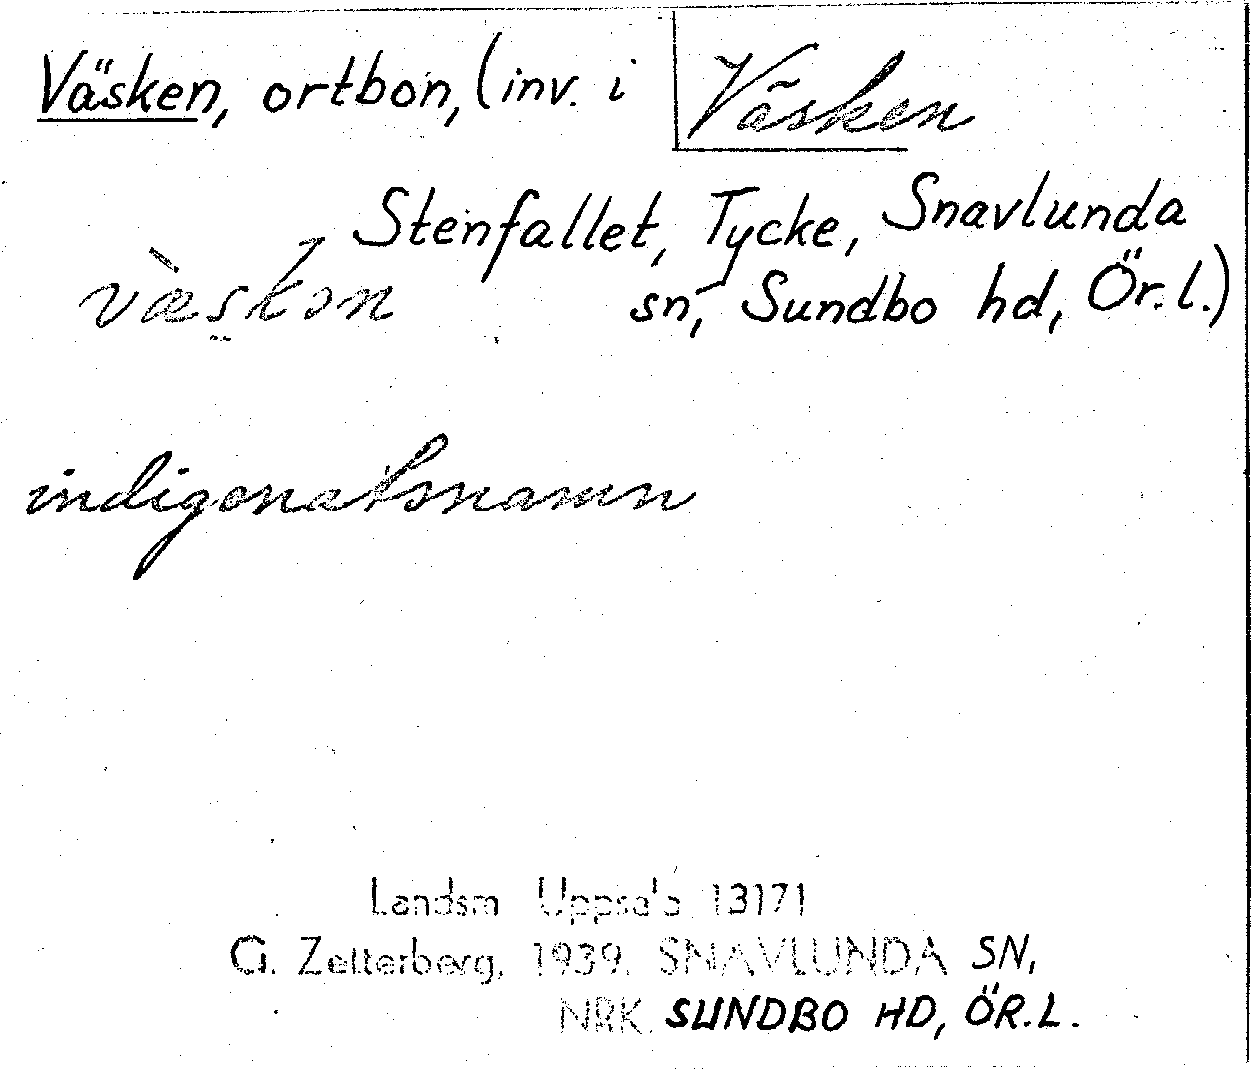 Väsken, ortbon, (inv. i
Väsken
Stenfallet, Tycke, Snavlunda
sn, Sundbo hd, Ör.l.)
indigenatsnamn
Landsm Uppsala 13171
G. Zetterberg, 1939. SNAVLUNDA SN,
NRK. SUNDBO HD, ÖR.L.